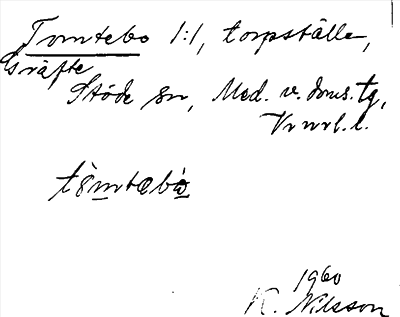 Tomtebo 1:1, torpställe,
Gräfte
Stöde sn, Med. v. doms. tg,
Vrnrl. l.
1960
K. Nilsson